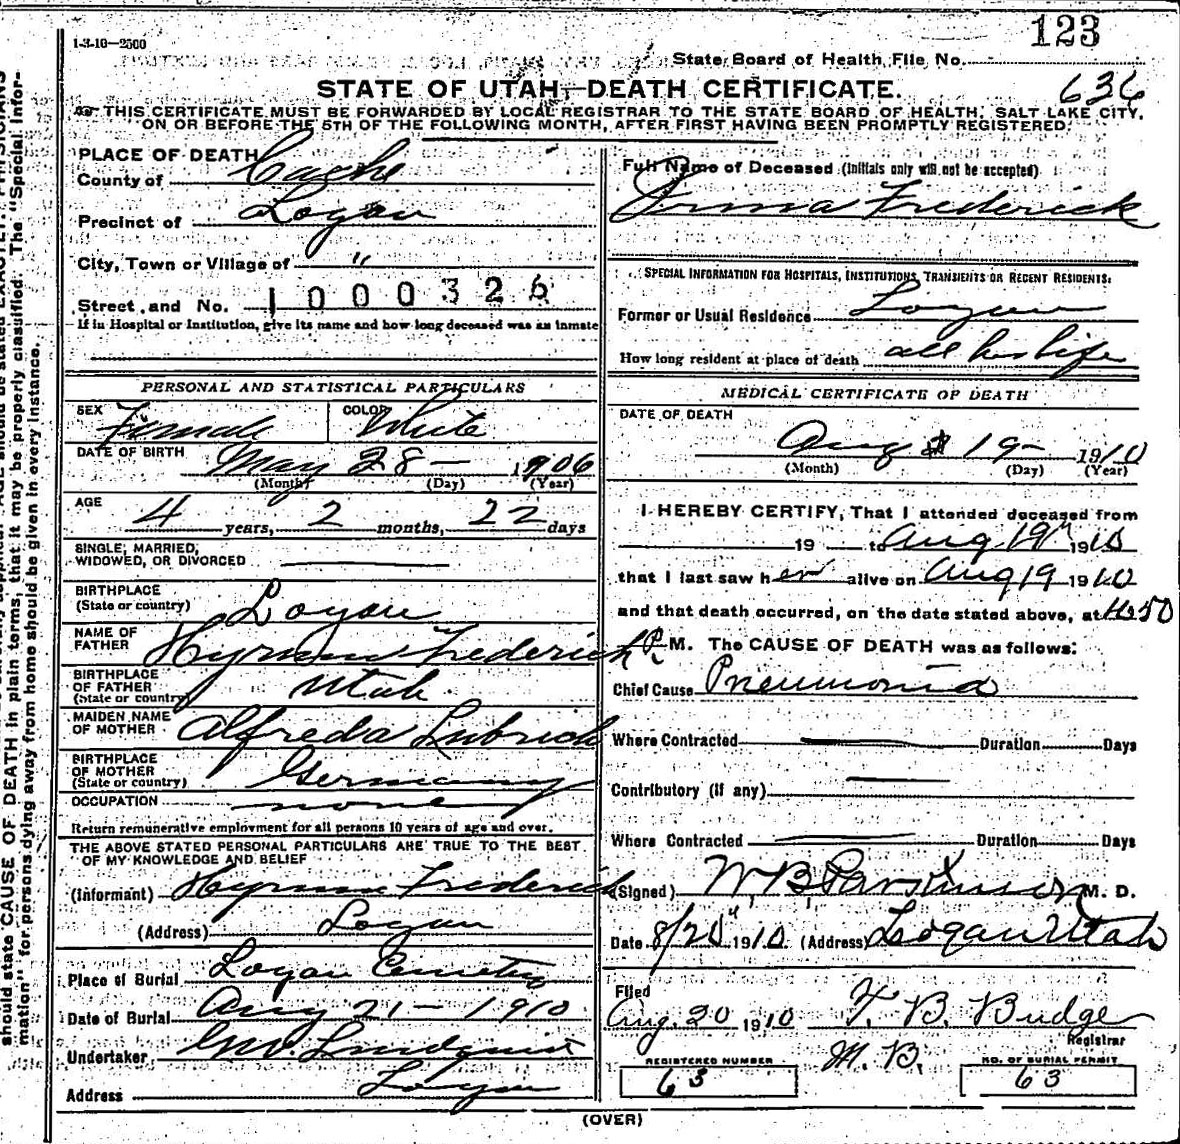 1-3-10—2500
123
State Board of Health File No.
636
STATE OF UTAH—DEATH CERTIFICATE.
THIS CERTIFICATE MUST BE FORWARDED BY LOCAL REGISTRAR TO THE STATE BOARD OF HEALTH, SALT LAKE CITY,
ON OR BEFORE THE 5TH OF THE FOLLOWING MONTH, AFTER FIRST HAVING BEEN PROMPTLY REGISTERED.
PLACE OF DEATH
County of Cache
Precinct of Logan
City, Town or Village of "
Street and No. 1000326
If in Hospital or Institution, give its name and how long deceased was an inmate
PERSONAL AND STATISTICAL PARTICULARS
SEX Female COLOR White
DATE OF BIRTH May 28— 1906
(Month) (Day) (Year)
AGE 4 years, 2 months, 22 days
SINGLE, MARRIED,
WIDOWED, OR DIVORCED
BIRTHPLACE
(State or country) Logan
NAME OF
FATHER Hyrum Frederick
BIRTHPLACE
OF FATHER Utah
(State or country)
MAIDEN NAME
OF MOTHER Alfreda Lubrich
BIRTHPLACE
OF MOTHER Germany
(State or country)
OCCUPATION none
Return remunerative employment for all persons 10 years of age and over.
THE ABOVE STATED PERSONAL PARTICULARS ARE TRUE TO THE BEST
OF MY KNOWLEDGE AND BELIEF
(Informant) Hyrum Frederick
(Address) Logan
Place of Burial Logan Cemetery
Date of Burial Aug 21— 1910
Undertaker Lindquist
Address Logan
Full Name of Deceased (Initials only will not be accepted)
Irma Frederick
SPECIAL INFORMATION FOR HOSPITALS, INSTITUTIONS, TRANSIENTS OR RECENT RESIDENTS.
Former or Usual Residence Logan
How long resident at place of death all her life
MEDICAL CERTIFICATE OF DEATH
DATE OF DEATH
Aug 19— 1910
(Month) (Day) (Year)
I HEREBY CERTIFY, That I attended deceased from
19 to Aug 19" 1910
that I last saw her alive on Aug 19 1910
and that death occurred, on the date stated above, at
P. M. The CAUSE OF DEATH was as follows:
Chief Cause Pneumonia
Where Contracted Duration Days
Contributory (if any)
Where Contracted Duration Days
(Signed) W B Parkinson M. D.
Date 8/20" 1910 (Address) Logan Utah
Filed
Aug. 20 1910 B. Budge
Registrar
M. B.
REGISTERED NUMBER
63
NO. OF BURIAL PERMIT
63
(OVER)
should state CAUSE OF DEATH in plain terms, that it may be properly classified. The "Special Infor-
mation" for persons dying away from home should be given in every instance.